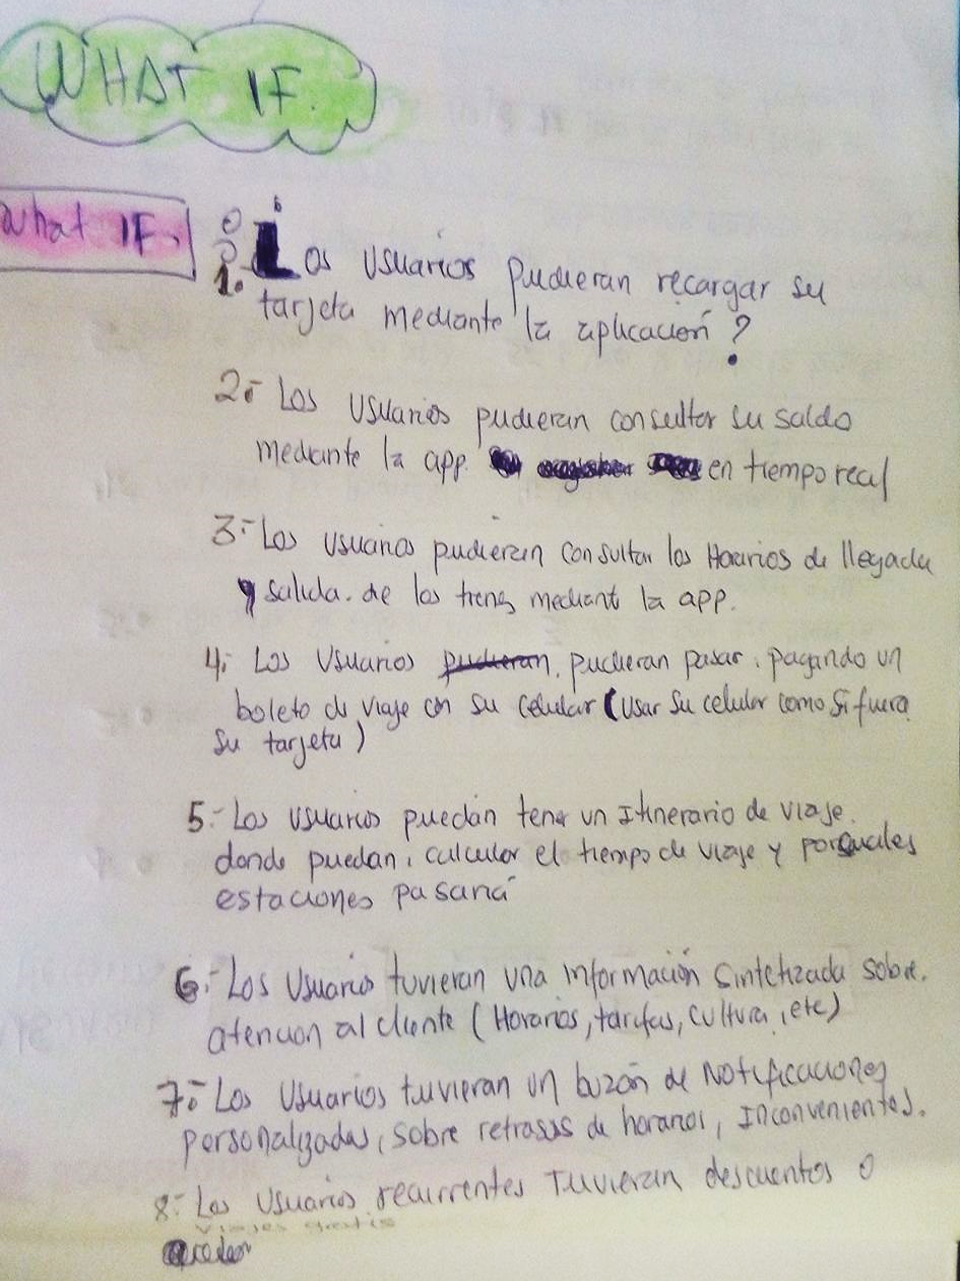 WHAT IF.
What IF.
1.- Los Usuarios pudieran recargar su
tarjeta mediante la aplicación?
2.- Los Usuarios pudieran consultar su saldo
mediante la app. en tiempo real
3.- Los Usuarios pudieran consultar los Horarios de llegada
y salida. de los trenes mediant la app.
4.- Los Usuarios pudieran. pudieran pasar. pagando un
boleto de viaje con su celular (Usar su celular como si fuera
Su tarjeta)
5.- Los Usuarios puedan tener un Itinerario de viaje.
donde puedan, calcular el tiempo de viaje y por cuales
estaciones pasaría
6.- Los Usuarios tuvieran una información Sintetizada Sobre.
atencion al cliente (Horarios, tarifas, cultura, etc)
7.- Los Usuarios tuvieran un buzón de Notificaciones
personalizadas, sobre retrasos de horarios, Inconvenientes.
8.- Los Usuarios recurrentes Tuvieran descuentos o
Viajes gratis